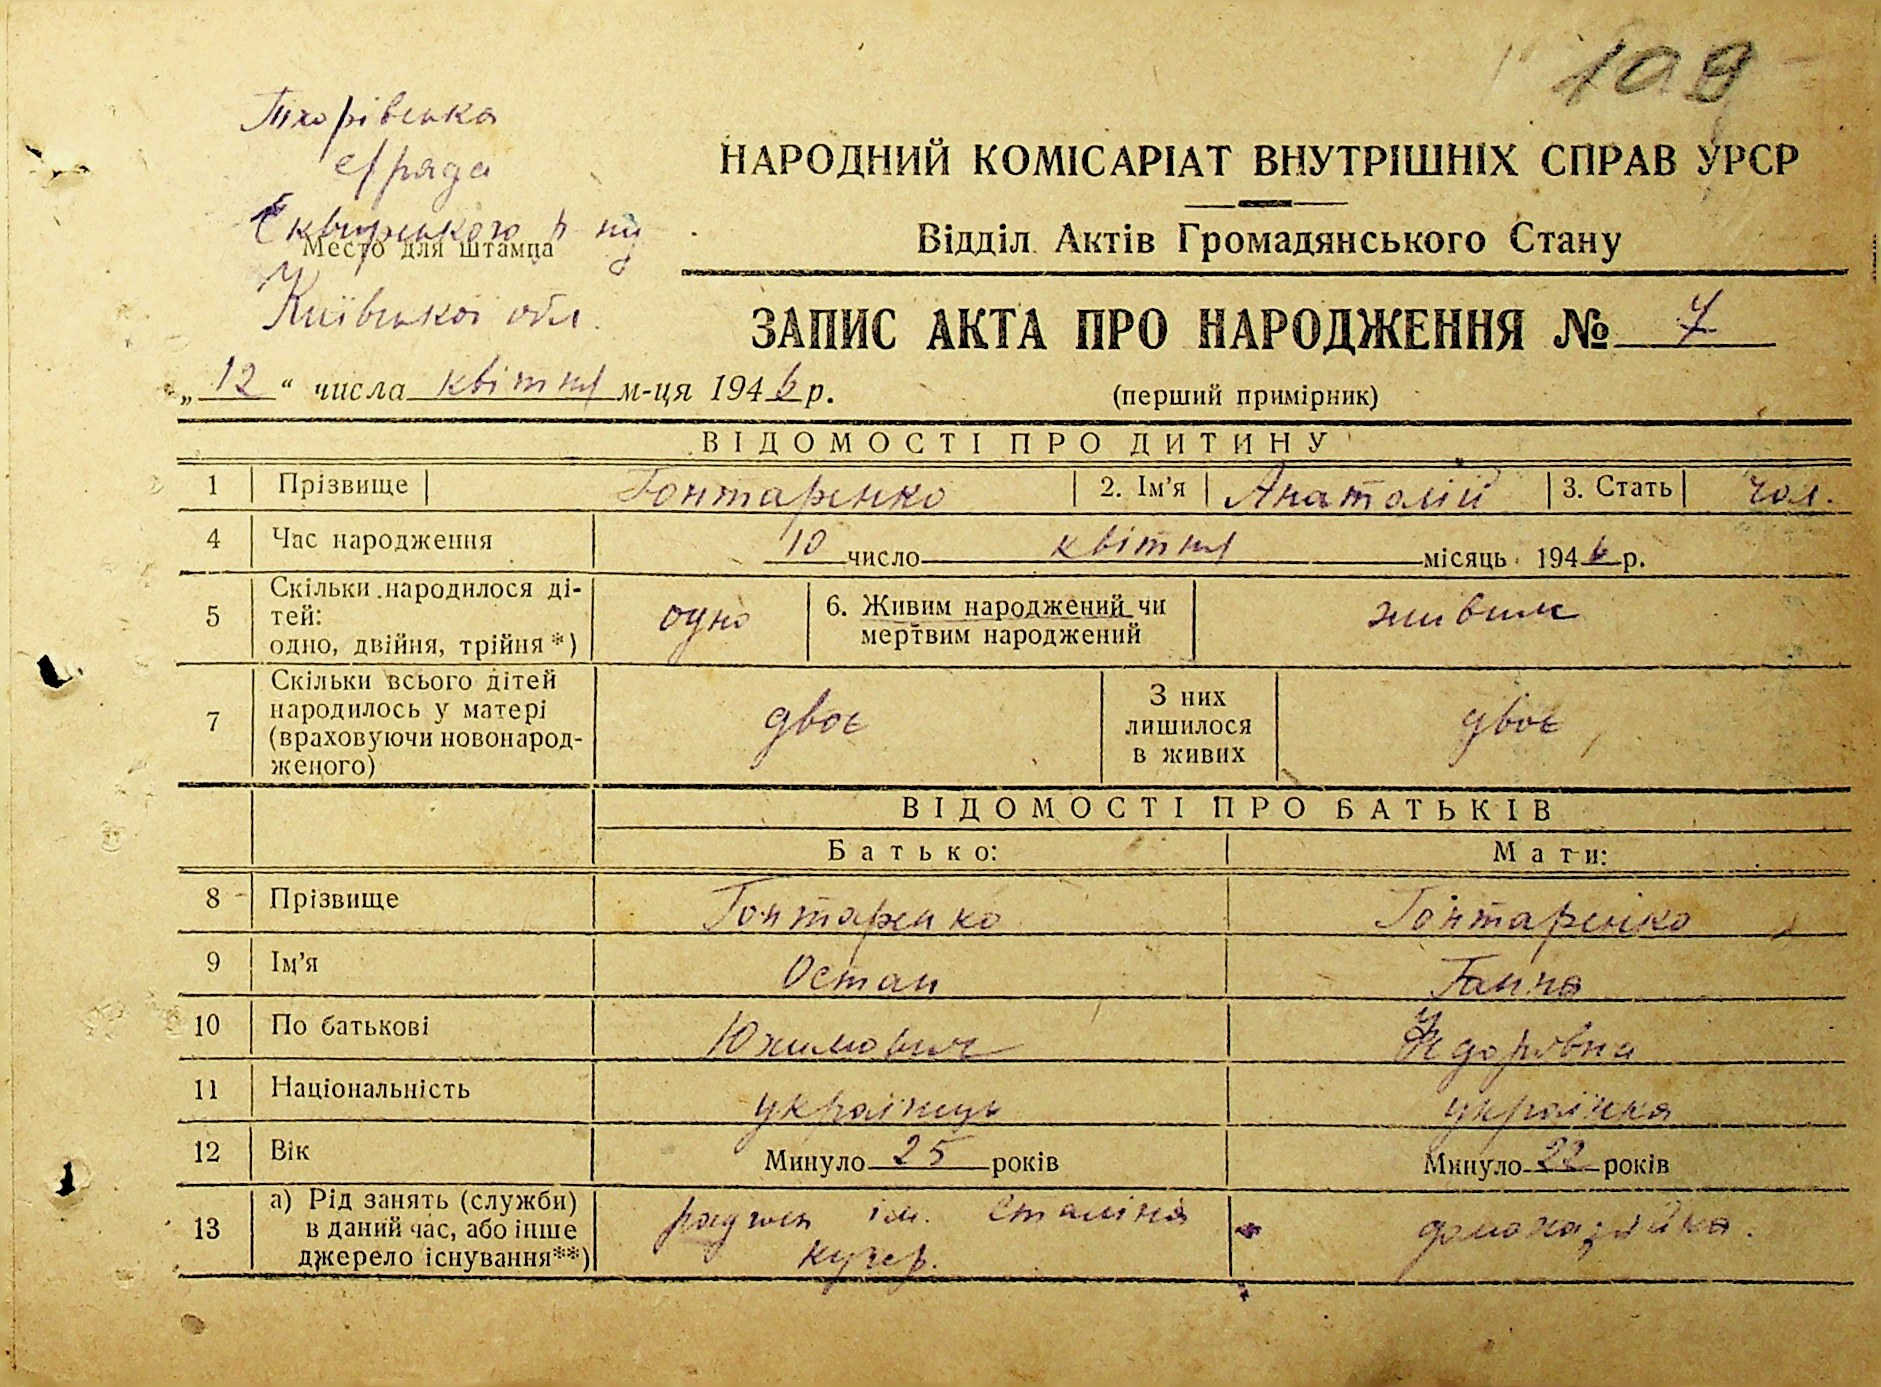 109
Тхорівська
с/рада
Сквирського р-ну
Место для штампа
Київської обл.
НАРОДНИЙ КОМІСАРІАТ ВНУТРІШНІХ СПРАВ УРСР
Відділ Актів Громадянського Стану
ЗАПИС АКТА ПРО НАРОДЖЕННЯ № 7
„12“ числа квітня м-ця 1946 р. (перший примірник)
ВІДОМОСТІ ПРО ДИТИНУ
1 Прізвище Гонтаренко 2. Ім'я Анатолій 3. Стать чол.
4 Час народження 10 число квітня місяць 1946 р.
5 Скільки народилося ді-
тей:
одно, двійня, трійня *) одно 6. Живим народжений чи
мертвим народжений живим
7 Скільки всього дітей
народилось у матері
(враховуючи новонарод-
женого) двоє З них
лишилося
в живих двоє
ВІДОМОСТІ ПРО БАТЬКІВ
Батько: Мати:
8 Прізвище Гонтаренко Гонтаренко
9 Ім'я Остап Ганна
10 По батькові Юхимович
11 Національність українець українка
12 Вік Минуло 25 років Минуло 22 років
13 а) Рід занять (служби)
в даний час, або інше
джерело існування**) ім. Сталіна
кучер. домохазяйка.